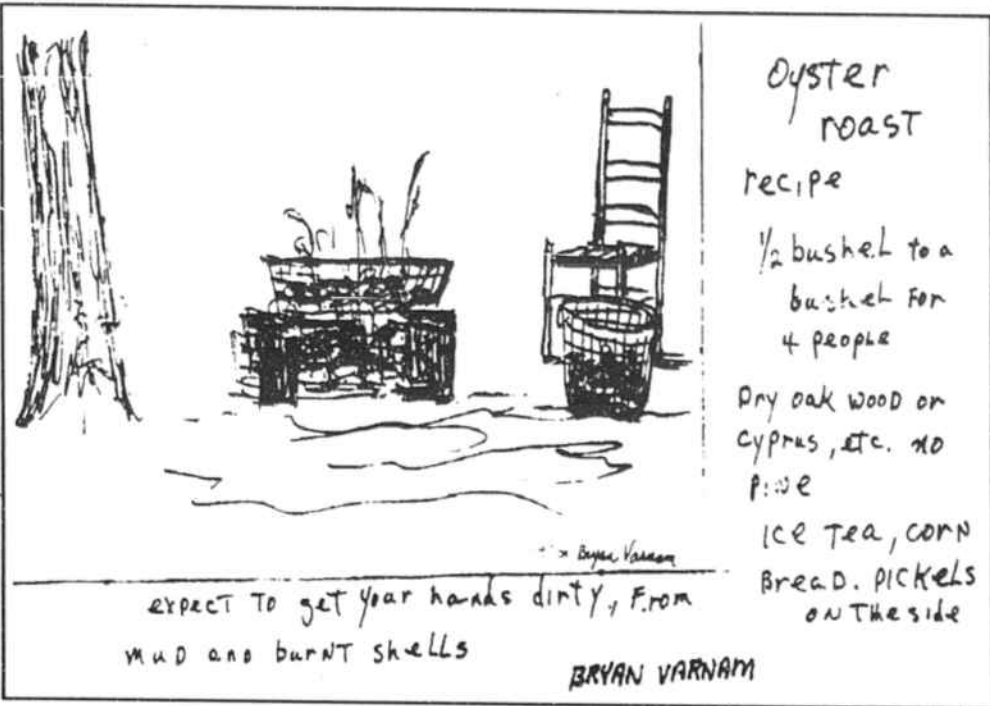 Oyster
roast
recipe
1/2 bushel to a
bushel For
4 people
Dry oak wood or
Cyprus, etc. no
Pine
Ice Tea, corn
Bread. PICKels
on The side
Bryan Varnam
expect To get your hands dirty, From
mud and burnt shells
BRYAN VARNAM